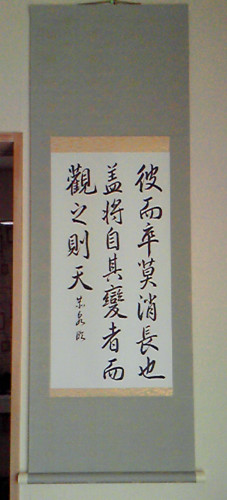 彼而卒莫消長也
盖将自其變者而
觀之則天